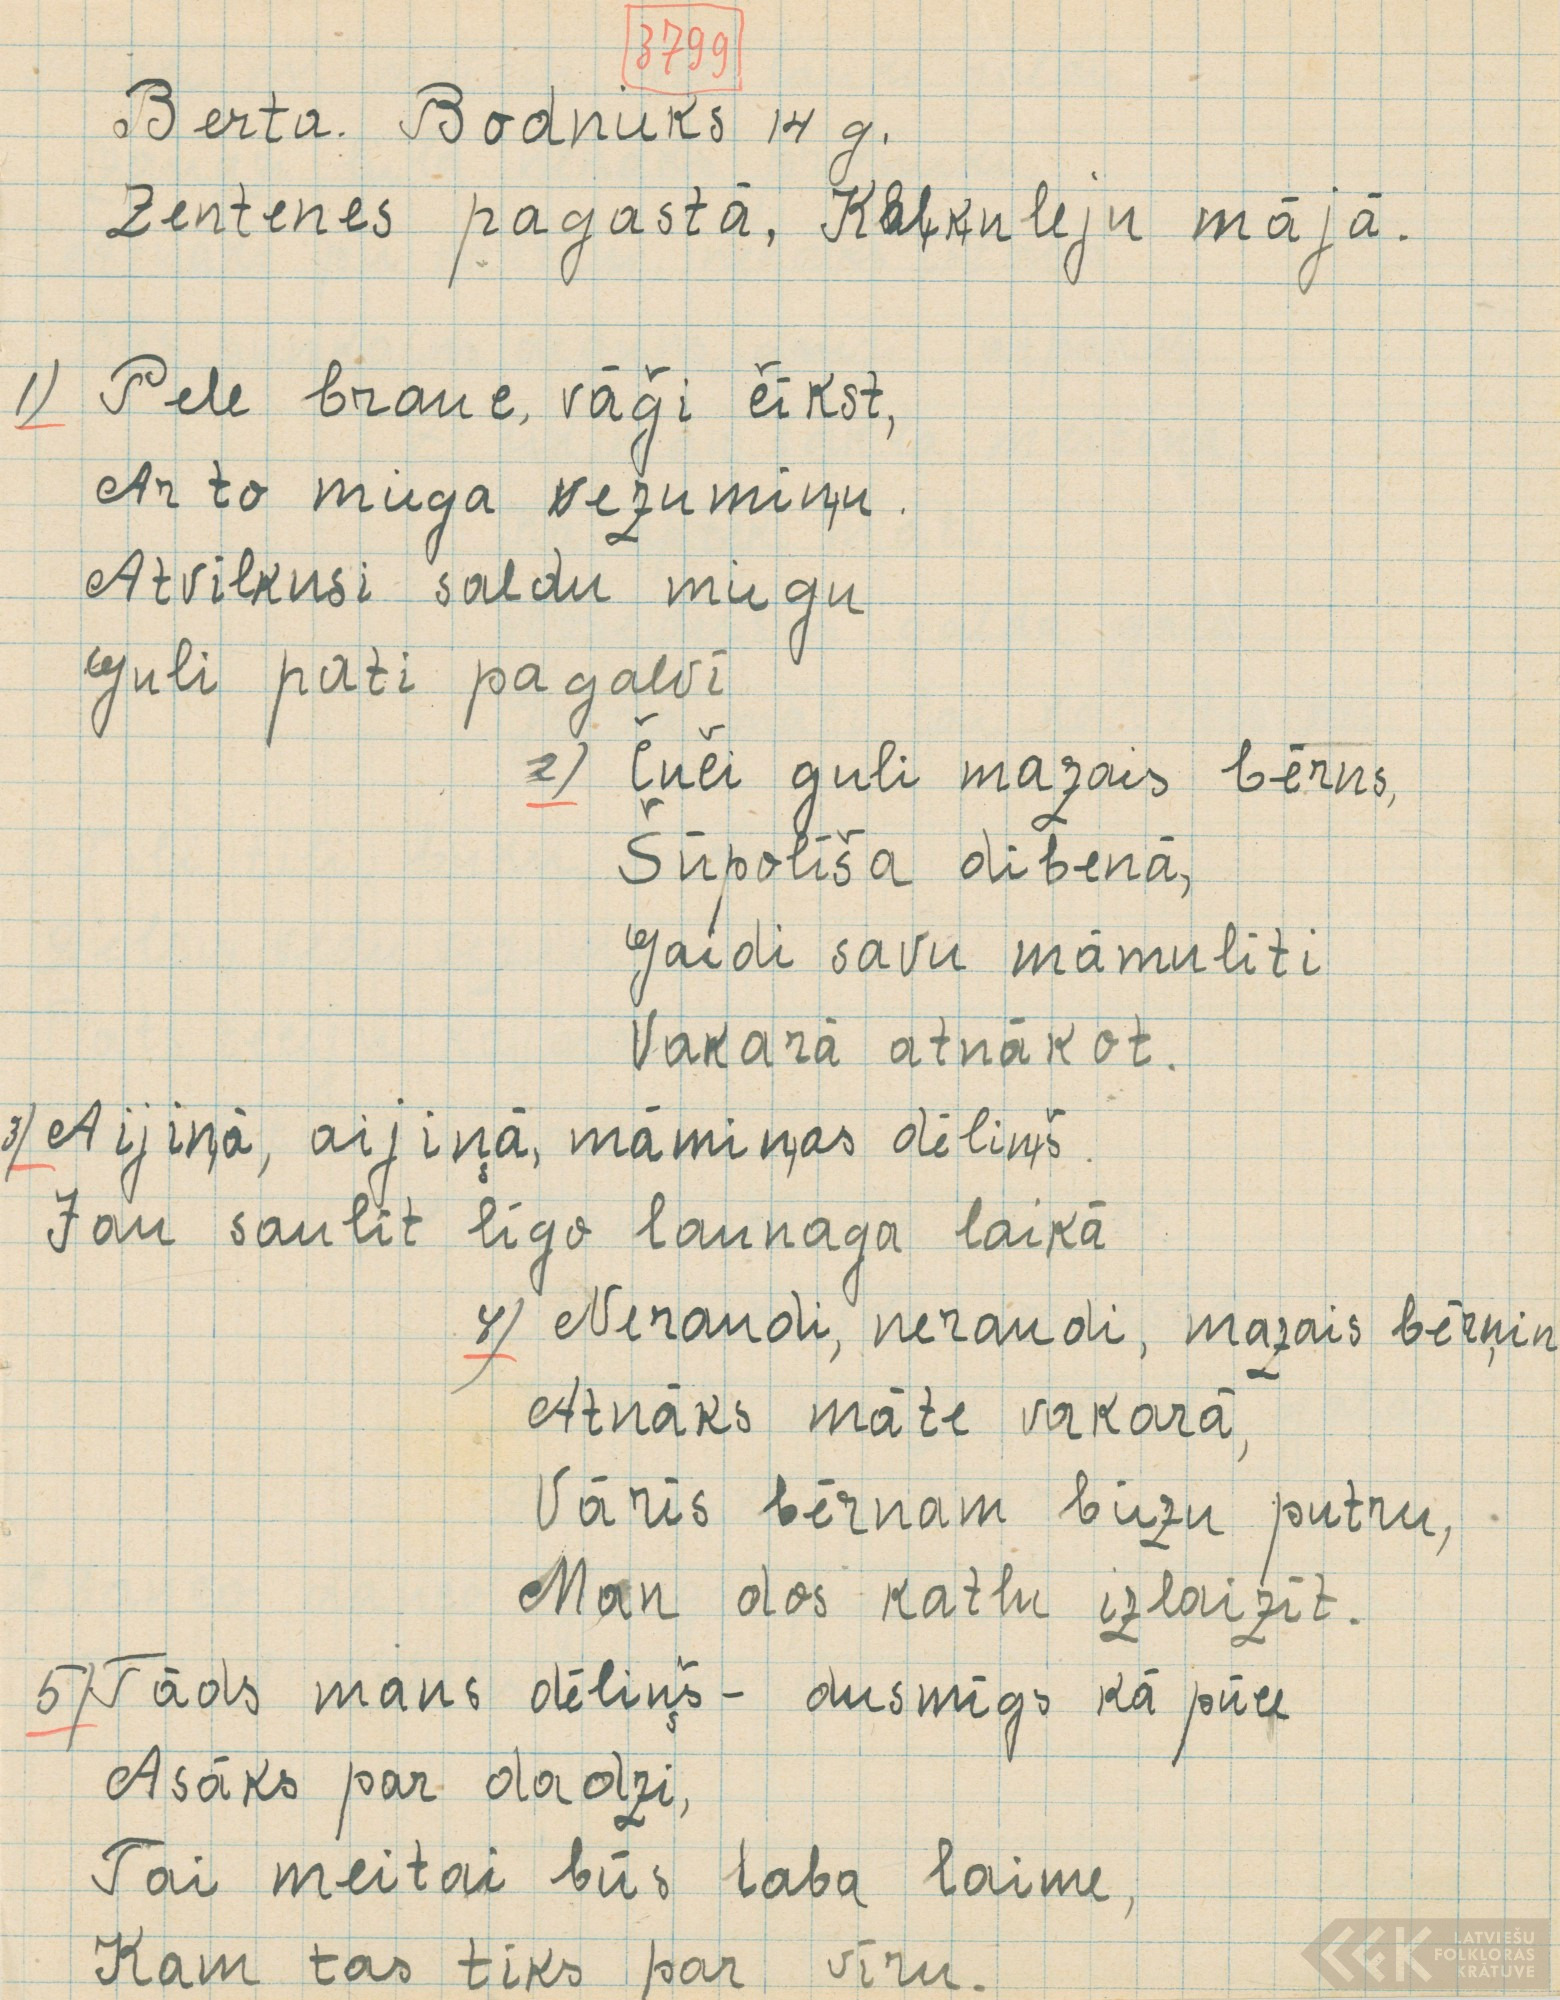 3799
Berta. Bodnieks 14 g.
Zentenes pagastā, Kalkuleju mājā.
1) Pele brauc, vāģi čīkst,
Ar to miega vezumiņu.
Atvilkusi saldu miegu
Guli pūti pagalvī
2) Čuči guli mazais bērns,
Šūpolīša dibenā,
Gaidi savu māmulīti
Vakarā atnākot.
3) Aijiņā, aijiņā, māmiņas dēliņš.
Jau saulīt līgo launaga laikā
4) Neraudi, neraudi, mazais bērņin
Atnāks māte vakarā,
Vārīs bērnam biezu putru,
Man dos katlu izlaizīt.
5) Tāds mans dēliņš - dusmīgs kā pūce
Asāks par dadzi,
Tai meitai būs laba laime,
Kam tas tiks par vīru.
LATVIEŠU
FOLKLORAS
KRĀTUVE